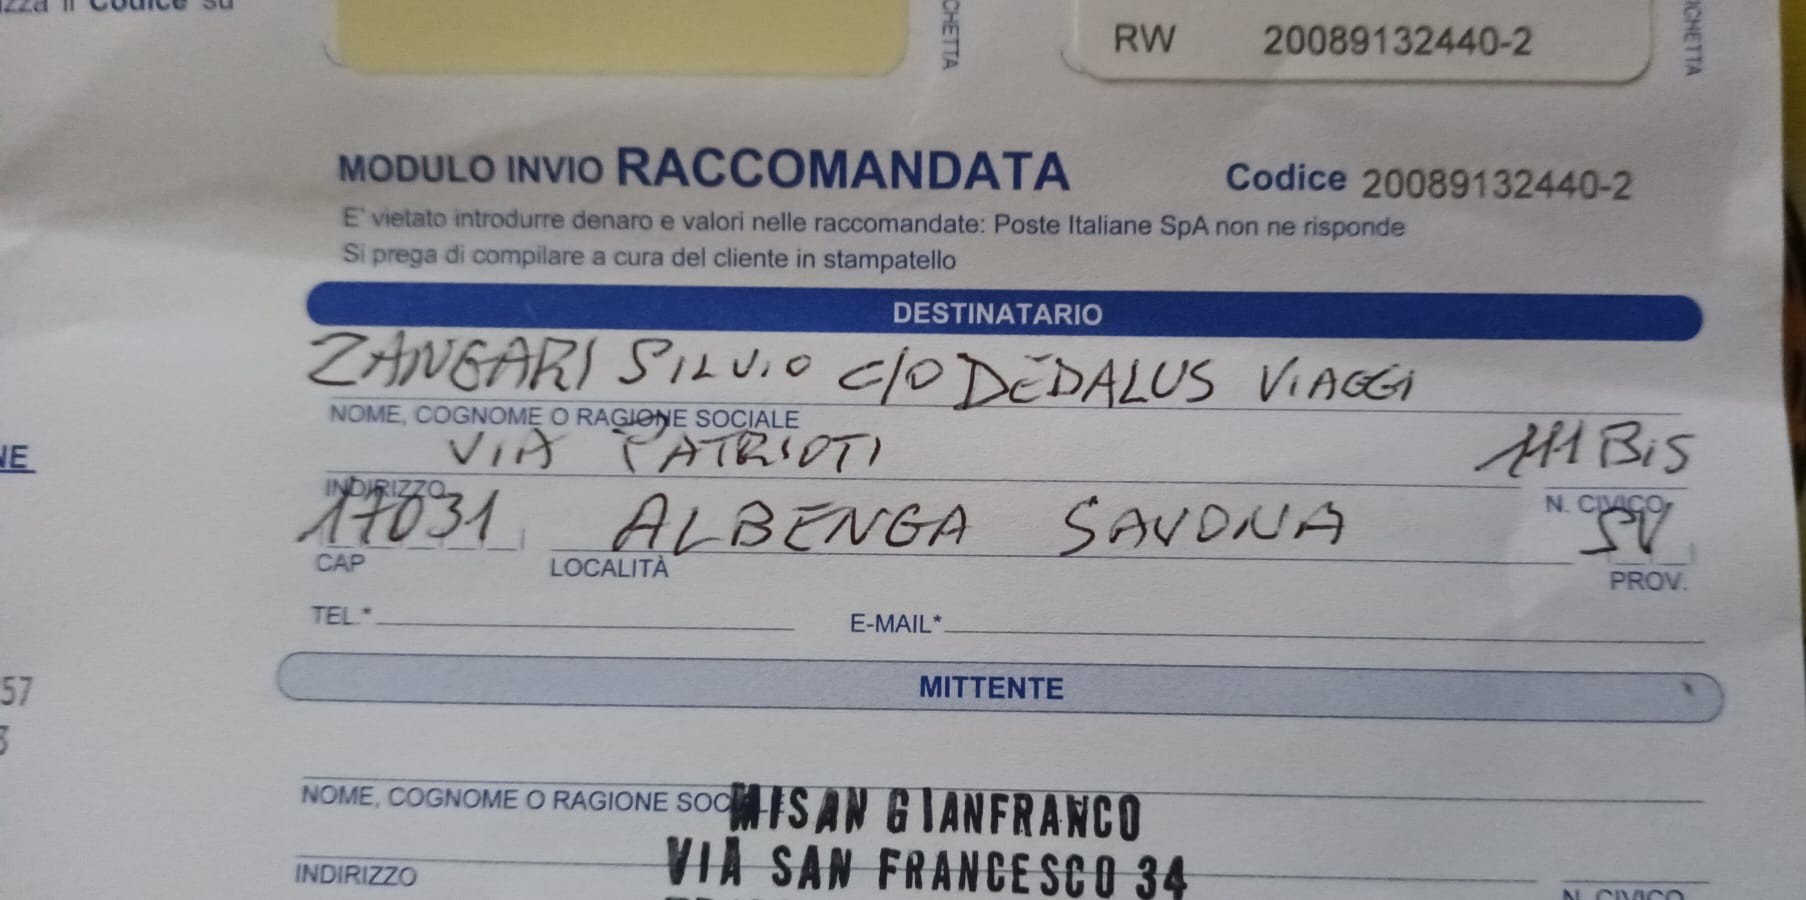 zza il Codice su
CHETTA
RW 20089132440-2
ICHETTA
MODULO INVIO RACCOMANDATA Codice 20089132440-2
E' vietato introdurre denaro e valori nelle raccomandate: Poste Italiane SpA non ne risponde
Si prega di compilare a cura del cliente in stampatello
DESTINATARIO
ZANGARI SILVIO C/O DEDALUS VIAGGI
NOME, COGNOME O RAGIONE SOCIALE
VIA PATRIOTI 111 BIS
NE
INDIRIZZO N. CIVICO
17031 ALBENGA SAVONA SV
CAP LOCALITÀ PROV.
TEL.* E-MAIL*
57
MITTENTE
3
NOME, COGNOME O RAGIONE SOC
MISAN GIANFRANCO
VIA SAN FRANCESCO 34
INDIRIZZO N. CIVICO